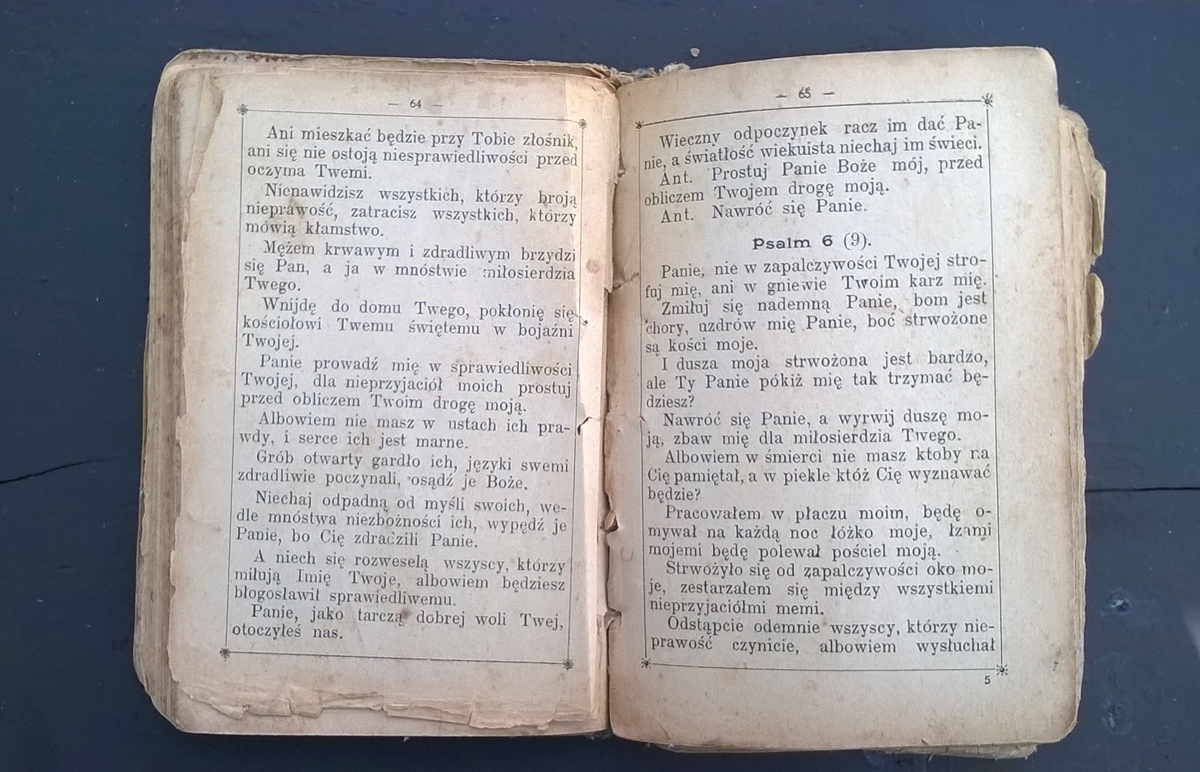 — 64 —
Ani mieszkać będzie przy Tobie złośnik,
ani się nie ostoją niesprawiedliwości przed
oczyma Twemi.
Nienawidzisz wszystkich, którzy broją
nieprawość, zatracisz wszystkich, którzy
mówią kłamstwo.
Mężem krwawym i zdradliwym brzydzi
się Pan, a ja w mnóstwie miłosierdzia
Twego.
Wnijdę do domu Twego, pokłonię się
kościołowi Twemu świętemu w bojaźni
Twojej.
Panie prowadź mię w sprawiedliwości
Twojej, dla nieprzyjaciół moich prostuj
przed obliczem Twoim drogę moją.
Albowiem nie masz w ustach ich pra-
wdy, i serce ich jest marne.
Grób otwarty gardło ich, języki swemi
zdradliwie poczynali, osądź je Boże.
Niechaj odpadną od myśli swoich, we-
dle mnóstwa niezbożności ich, wypędź je
Panie, bo Cię zdradzili Panie.
A niech się rozweselą wszyscy, którzy
miłują Imię Twoje, albowiem będziesz
błogosławił sprawiedliwemu.
Panie, jako tarczą dobrej woli Twej,
otoczyłeś nas.
— 65 —
Wieczny odpoczynek racz im dać Pa-
nie, a światłość wiekuista niechaj im świeci.
Ant. Prostuj Panie Boże mój, przed
obliczem Twojem drogę moją.
Ant. Nawróć się Panie.
Psalm 6 (9).
Panie, nie w zapalczywości Twojej stro-
fuj mię, ani w gniewie Twoim karz mię.
Zmiłuj się nademną Panie, bom jest
chory, uzdrów mię Panie, boć strwożone
są kości moje.
I dusza moja strwożona jest bardzo,
ale Ty Panie pókiż mię tak trzymać bę-
dziesz?
Nawróć się Panie, a wyrwij duszę mo-
ją, zbaw mię dla miłosierdzia Twego.
Albowiem w śmierci nie masz ktoby na
Cię pamiętał, a w piekle któż Cię wyznawać
będzie?
Pracowałem w płaczu moim, będę o-
mywał na każdą noc łóżko moje, łzami
mojemi będę polewał pościel moją.
Strwożyło się od zapalczywości oko mo-
je, zestarzałem się między wszystkiemi
nieprzyjaciółmi memi.
Odstąpcie odemnie wszyscy, którzy nie-
prawość czynicie, albowiem wysłuchał
5